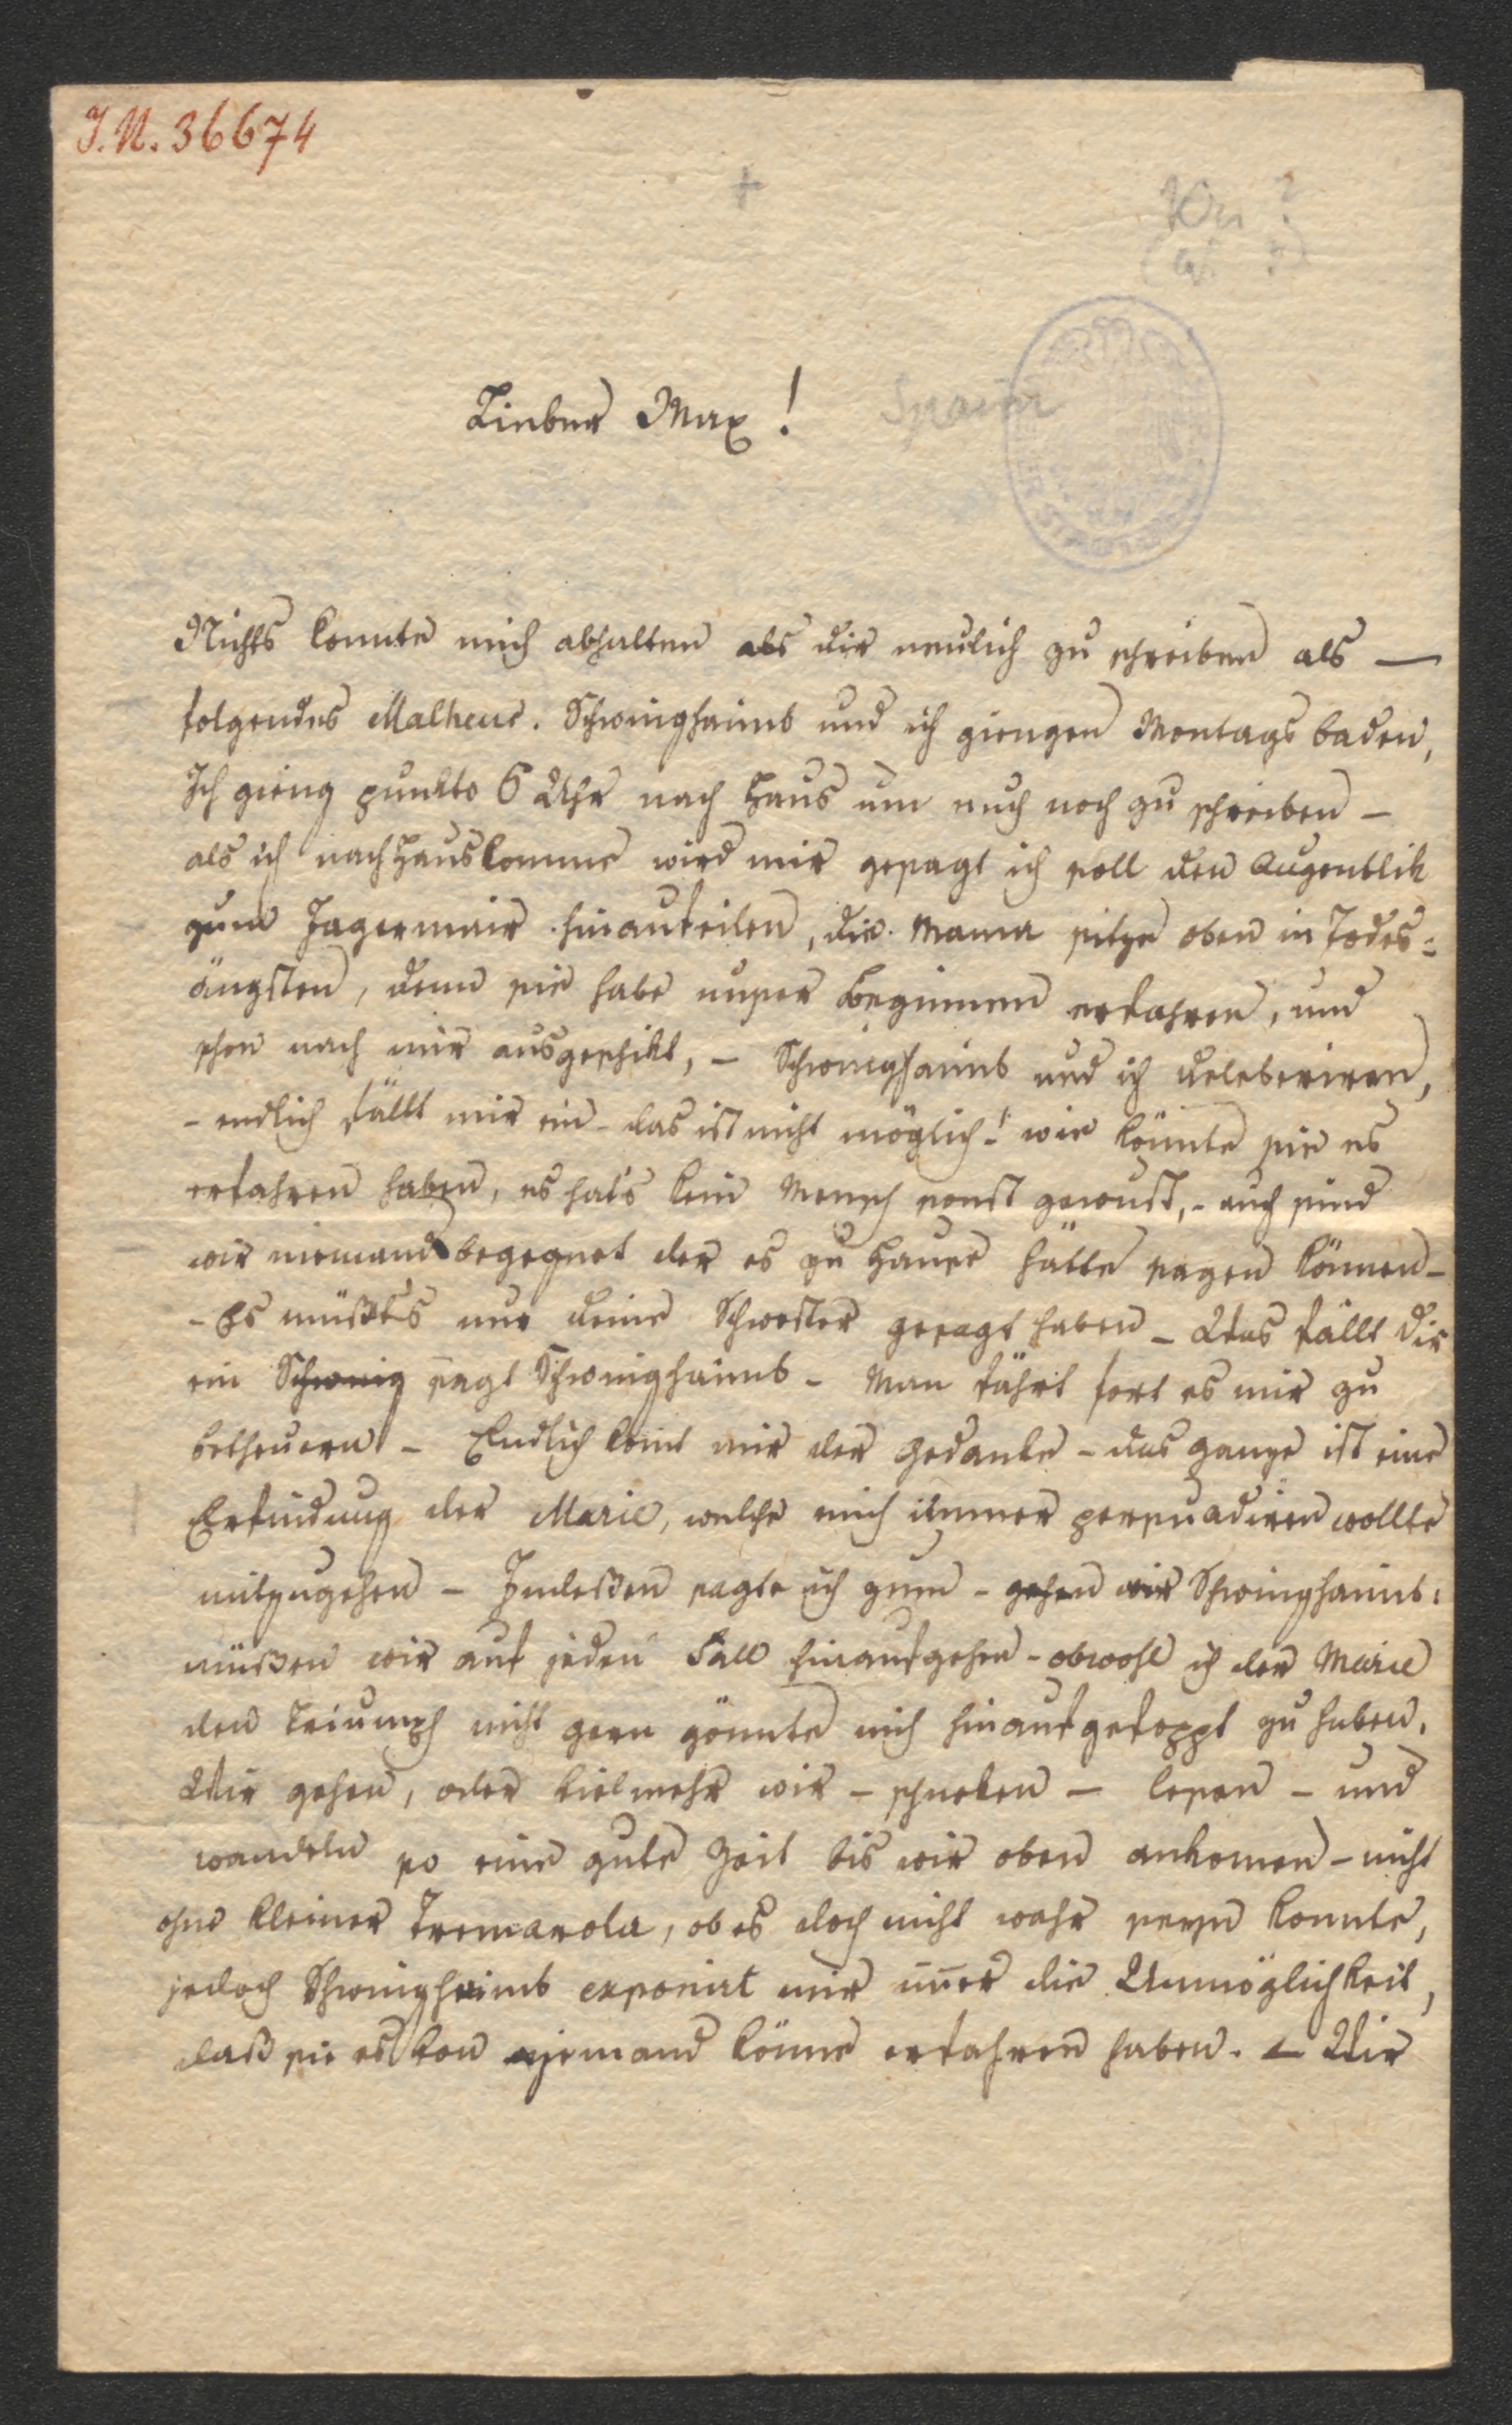 J.N. 36674
Lieber Max!
Nichts konnte mich abhalten als dir neulich zu schreiben als —
folgendes Malheur. Schwinghaimb und ich giengen Montags baden,
Ich gieng punkto 6 Uhr nach Haus um euch noch zu schreiben –
als ich nach Haus komme wird mir gesagt ich soll den Augenblik
zum Jagermair hinaufeilen, die Mama sitze oben in Todes-
ängsten, denn sie habe unser Beginnen erfahren, und
schon nach mir ausgeschikt, – Schwinghaimb und ich deleberiren,
– endlich fällt mir ein – das ist nicht möglich! wie könnte sie es
erfahren haben, es hat's kein Mensch sonst gewust, – auch sind
wir niemand begegnet der es zu Hause hätte sagen können –
– Es müßt's nur deine Schwester gesagt haben – Was fällt dir
ein Schwing sagt Schwinghaimb – Man fährt fort es mir zu
betheuern – Endlich komt mir der Gedanke – das ganze ist eine
Erfindung der Marie, welche mich immer persuadiren wollte
mitzugehen – Indeßen sagte ich zum – gehen wir Schwinghaimb:
müßen wir auf jeden Fall hinaufgehen – obwohl ich der Marie
den Triumph nicht gern gönnte mich hinaufgefoppt zu haben.
Wir gehen, oder vielmehr wir – schneken – lesen – und
wandeln so eine gute Zeit bis wir oben ankomen – nicht
ohne kleiner Tremarola, ob es doch nicht wahr seyn konnte,
jedoch Schwinghaimb exponirt mir im̅er die Unmöglichkeit,
daß sie es von jemand könne erfahren haben. – Wir